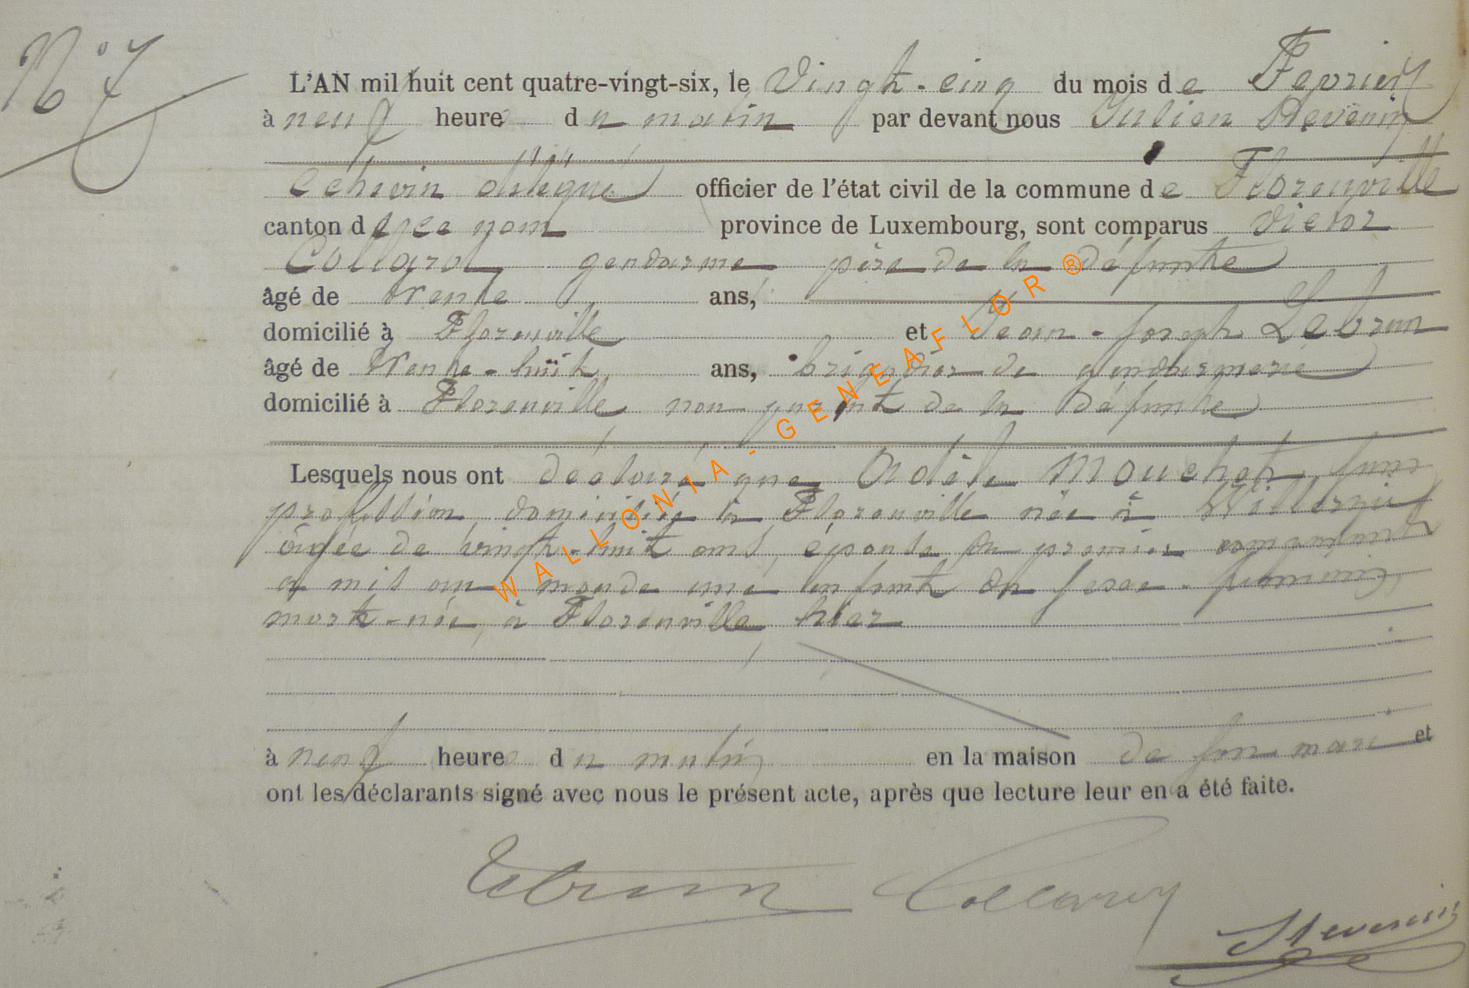 N° 7
L'AN mil huit cent quatre-vingt-six, le Vingt-cinq du mois de Fevrier
à neuf heure du matin par devant nous Julien
échevin délégué officier de l'état civil de la commune de Florenville
canton de ce nom province de Luxembourg, sont comparus Victor
gendarme père de la défunte
âgé de trente ans,
domicilié à Florenville et Jean-Joseph Lebrun
âgé de trente-huit ans, brigadier de gendarmerie
domicilié à Florenville non parent de la défunte
Lesquels nous ont déclaré que Adèle Mouchet sans
profession domiciliée à Florenville née à
âgée de vingt-huit ans, épouse du premier comparant
a mis au monde une enfant du sexe féminin,
mort-née, à Florenville hier
à neuf heure du matin en la maison de son mari et
ont les déclarants signé avec nous le présent acte, après que lecture leur en a été faite.
Lebrun
WALLONIA - GENEAFLOR ®